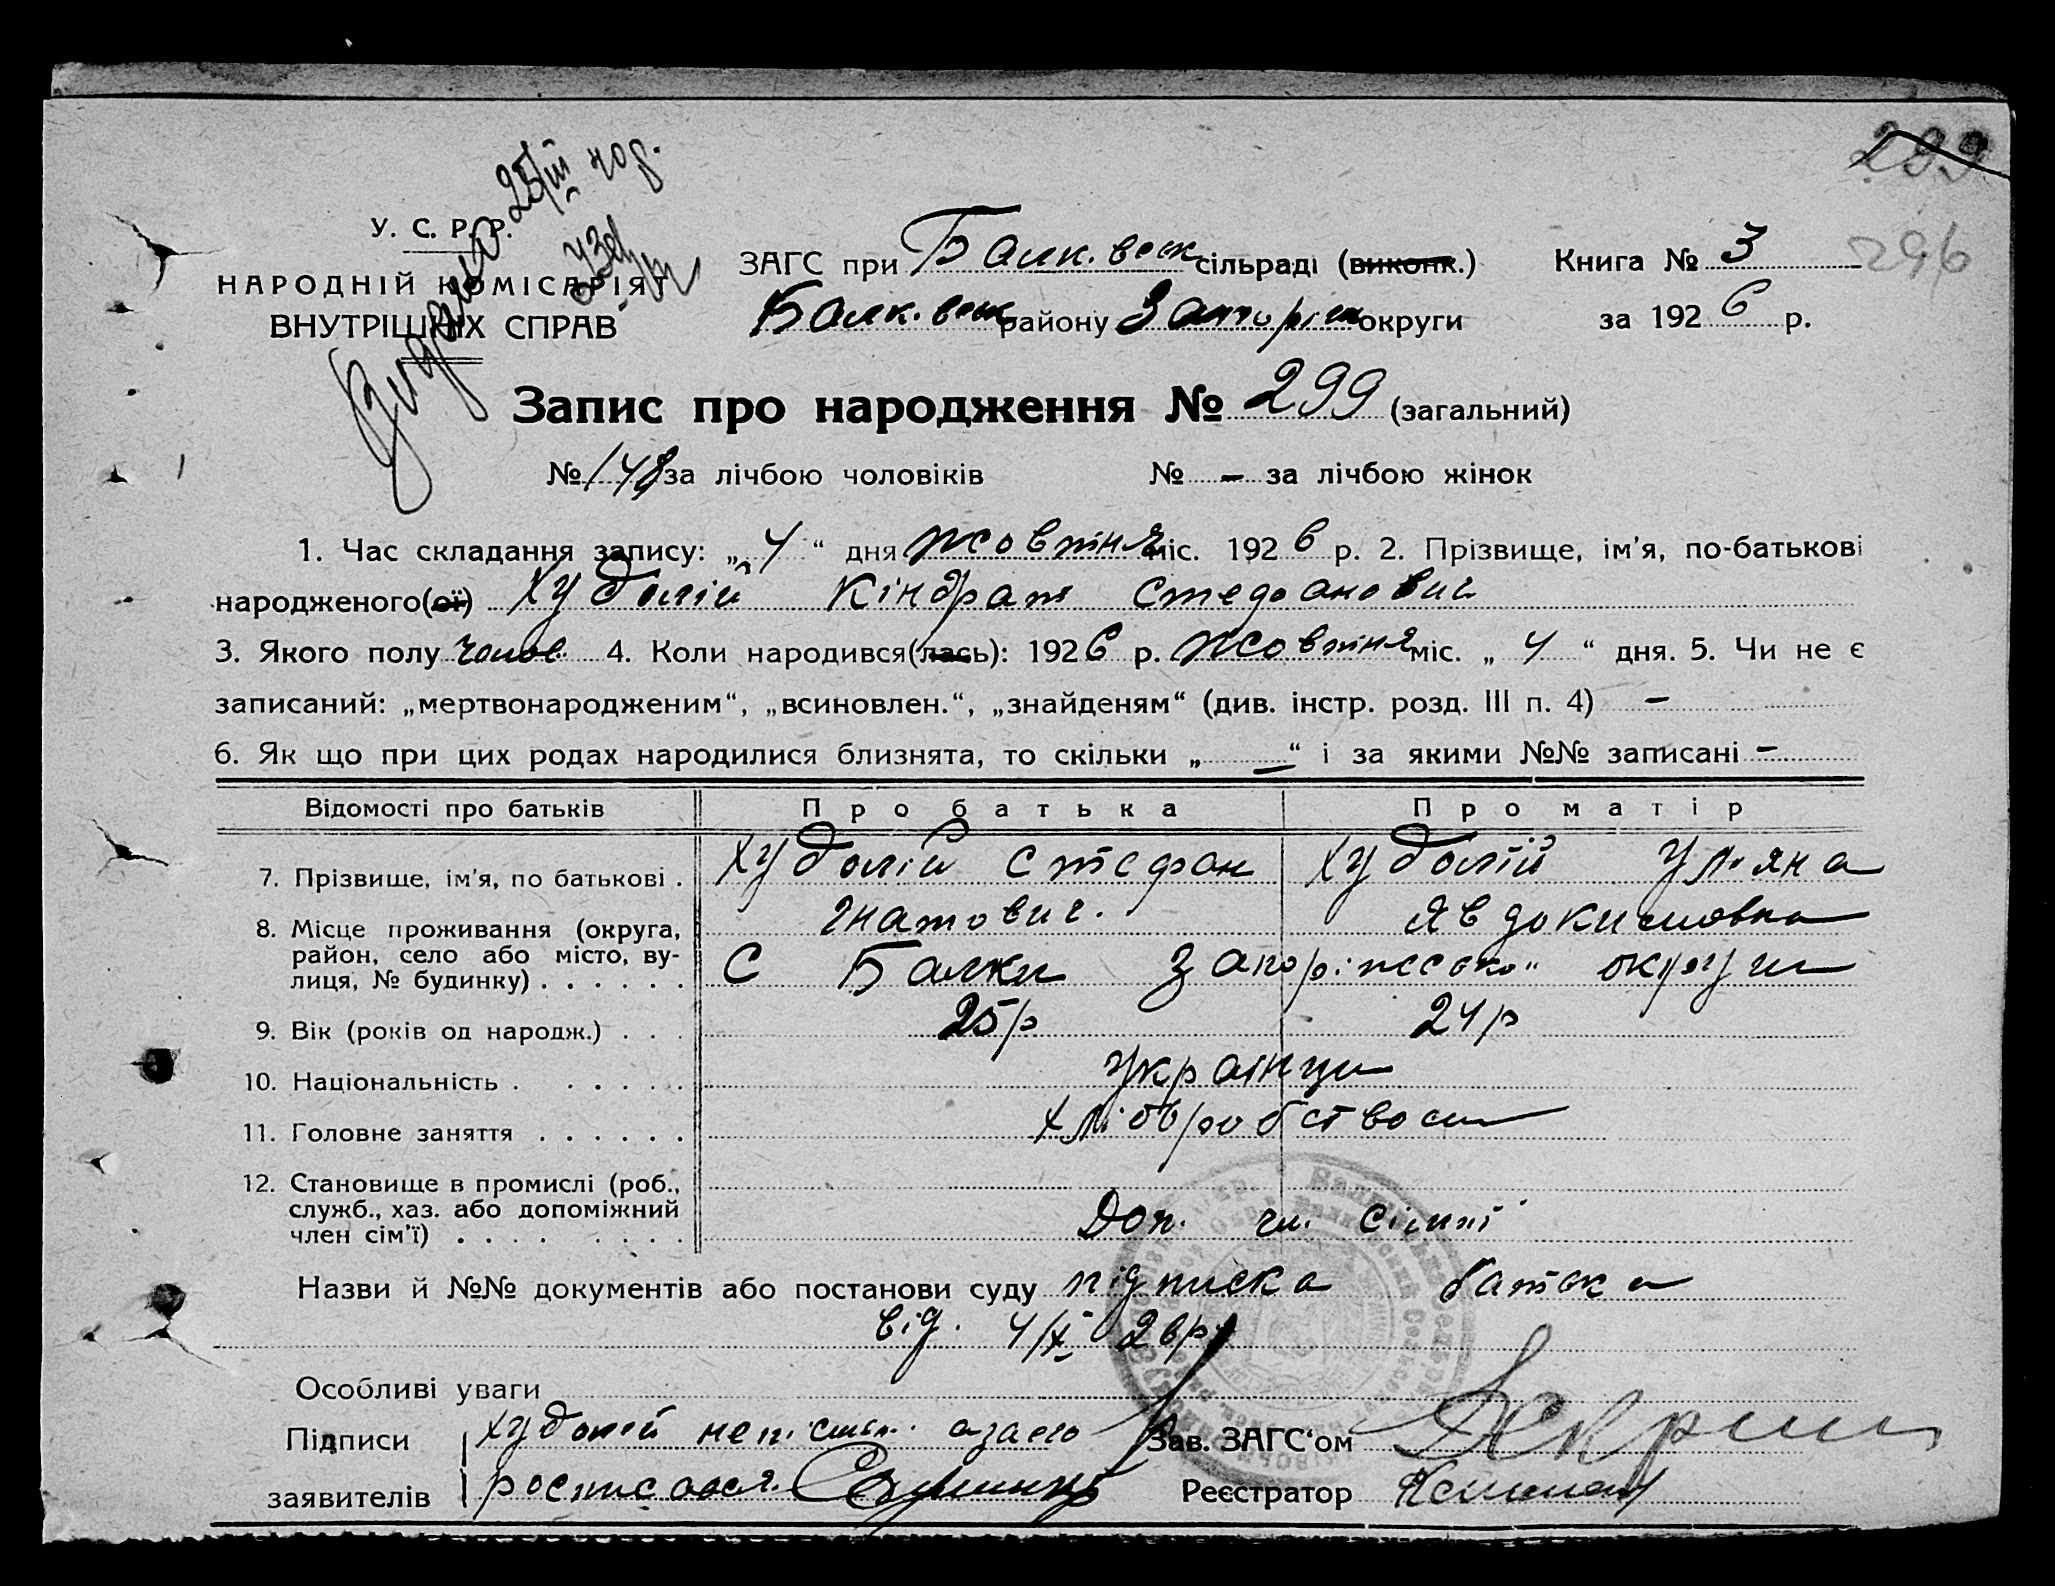 299
296
У. С. Р. Р.
НАРОДНІЙ КОМІСАРІЯТ
ВНУТРІШНІХ СПРАВ
Видано 25/III
ЗАГС при Балк. вськ сільраді (виконк.) Книга № 3
Балк. вськ району Запоріж округи за 1926 р.
Запис про народження № 299 (загальний)
№ 148 за лічбою чоловіків № – за лічбою жінок
1. Час складання запису: „4“ дня жовтня міс. 1926 р. 2. Прізвище, ім'я, по-батькові
народженого(ої) Худолій Кіндрат Стефанович
3. Якого полу чолов. 4. Коли народився(лась): 1926 р. жовтня міс. „4“ дня. 5. Чи не є
записаний: „мертвонародженим“, „всиновлен.“, „знайденям“ (див. інстр. розд. III п. 4) –
6. Як що при цих родах народилися близнята, то скільки „–“ і за якими №№ записані –
Відомості про батьків Про батька Про матір
7. Прізвище, ім'я, по батькові . Худолій Стефан Худолій Уляна
Гнатович. Явдокимовна
8. Місце проживання (округа,
район, село або місто, ву-
лиця, № будинку) . . . . . . С Балки Запоріжської округи
9. Вік (років од народж.) . . . 25 р 24 р
10. Національність . . . . . . Українци
11. Головне заняття . . . . . . хліборобством
12. Становище в промислі (роб.,
служб., хаз. або допоміжний
член сім'ї) . . . . . . . . Доп. чл. сімї
Назви й №№ документів або постанови суду підписка батька
від. 4/X 26 р
Особливі уваги
Підписи Худолій неписьм. а за его Зав. ЗАГС'ом
заявителів росписався. Реєстратор